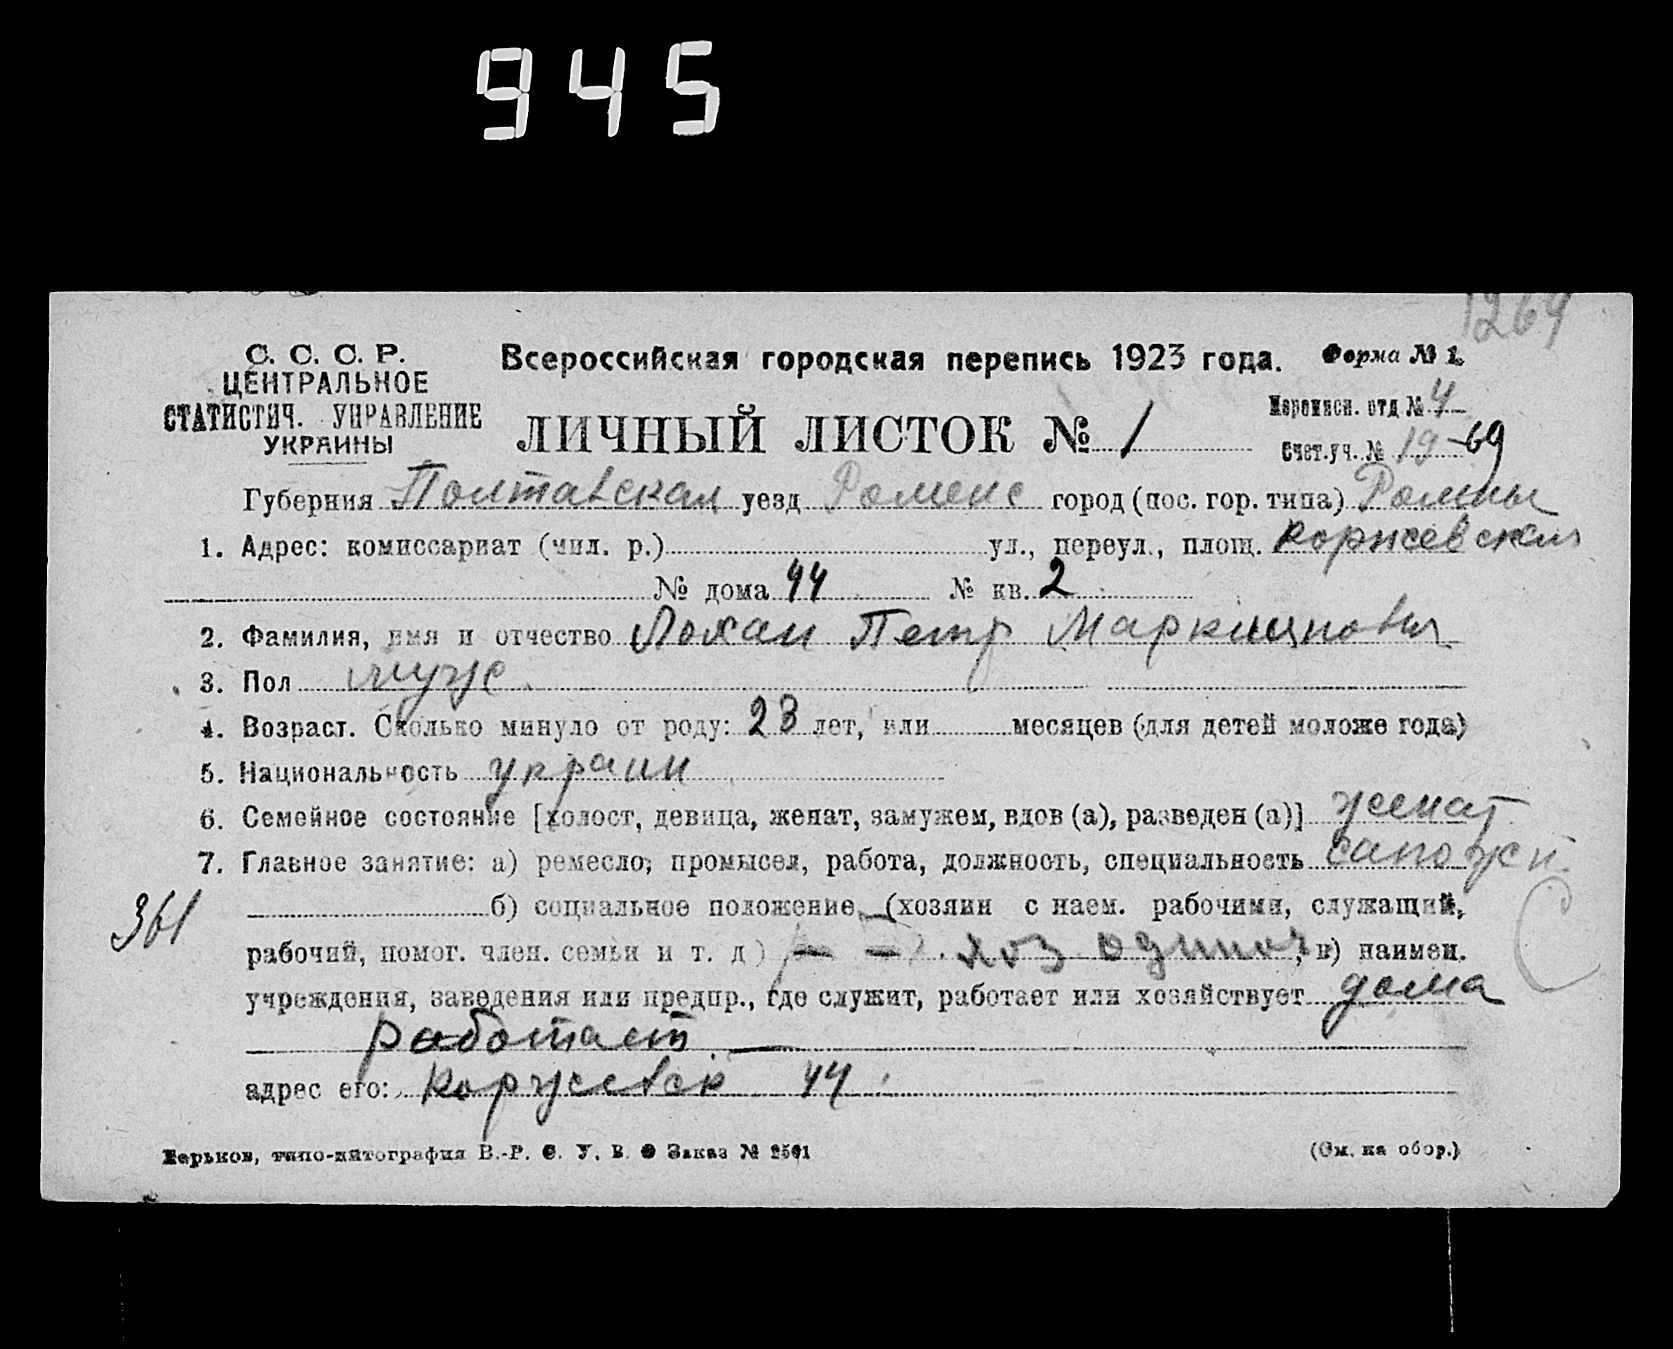 945
1269
С. С. С. Р.
ЦЕНТРАЛЬНОЕ
СТАТИСТИЧ. УПРАВЛЕНИЕ
УКРАИНЫ
Всероссийская городская перепись 1923 года.
Форма № 1.
ЛИЧНЫЙ ЛИСТОК № 1
Переписн. отд № 4
Счет. уч. № 19-69
Губерния Полтавская уезд Роменс город (пос. гор. типа) Ромны
1. Адрес: комиссариат (мил. р.) ул., переул., площ. Коржевская
№ дома 44 № кв. 2
2. Фамилия, имя и отчество Лохан Петр
3. Пол муж
4. Возраст. Сколько минуло от роду: 23 лет, или месяцев (для детей моложе года)
5. Национальность украин
6. Семейное состояние [холост, девица, женат, замужем, вдов (а), разведен (а)] женат
7. Главное занятие: а) ремесло, промысел, работа, должность, специальность сапожн.
361
б) социальное положение (хозяин с наем. рабочими, служащий,
рабочий, помог. член. семьи и т. д) хоз одиноч, в) наимен.
учреждения, заведения или предпр., где служит, работает или хозяйствует дома
работает
адрес его: Коржевск 44
Харьков, типо-литография В.-Р. С. У. В. О Заказ № 2501
(См. на обор.)